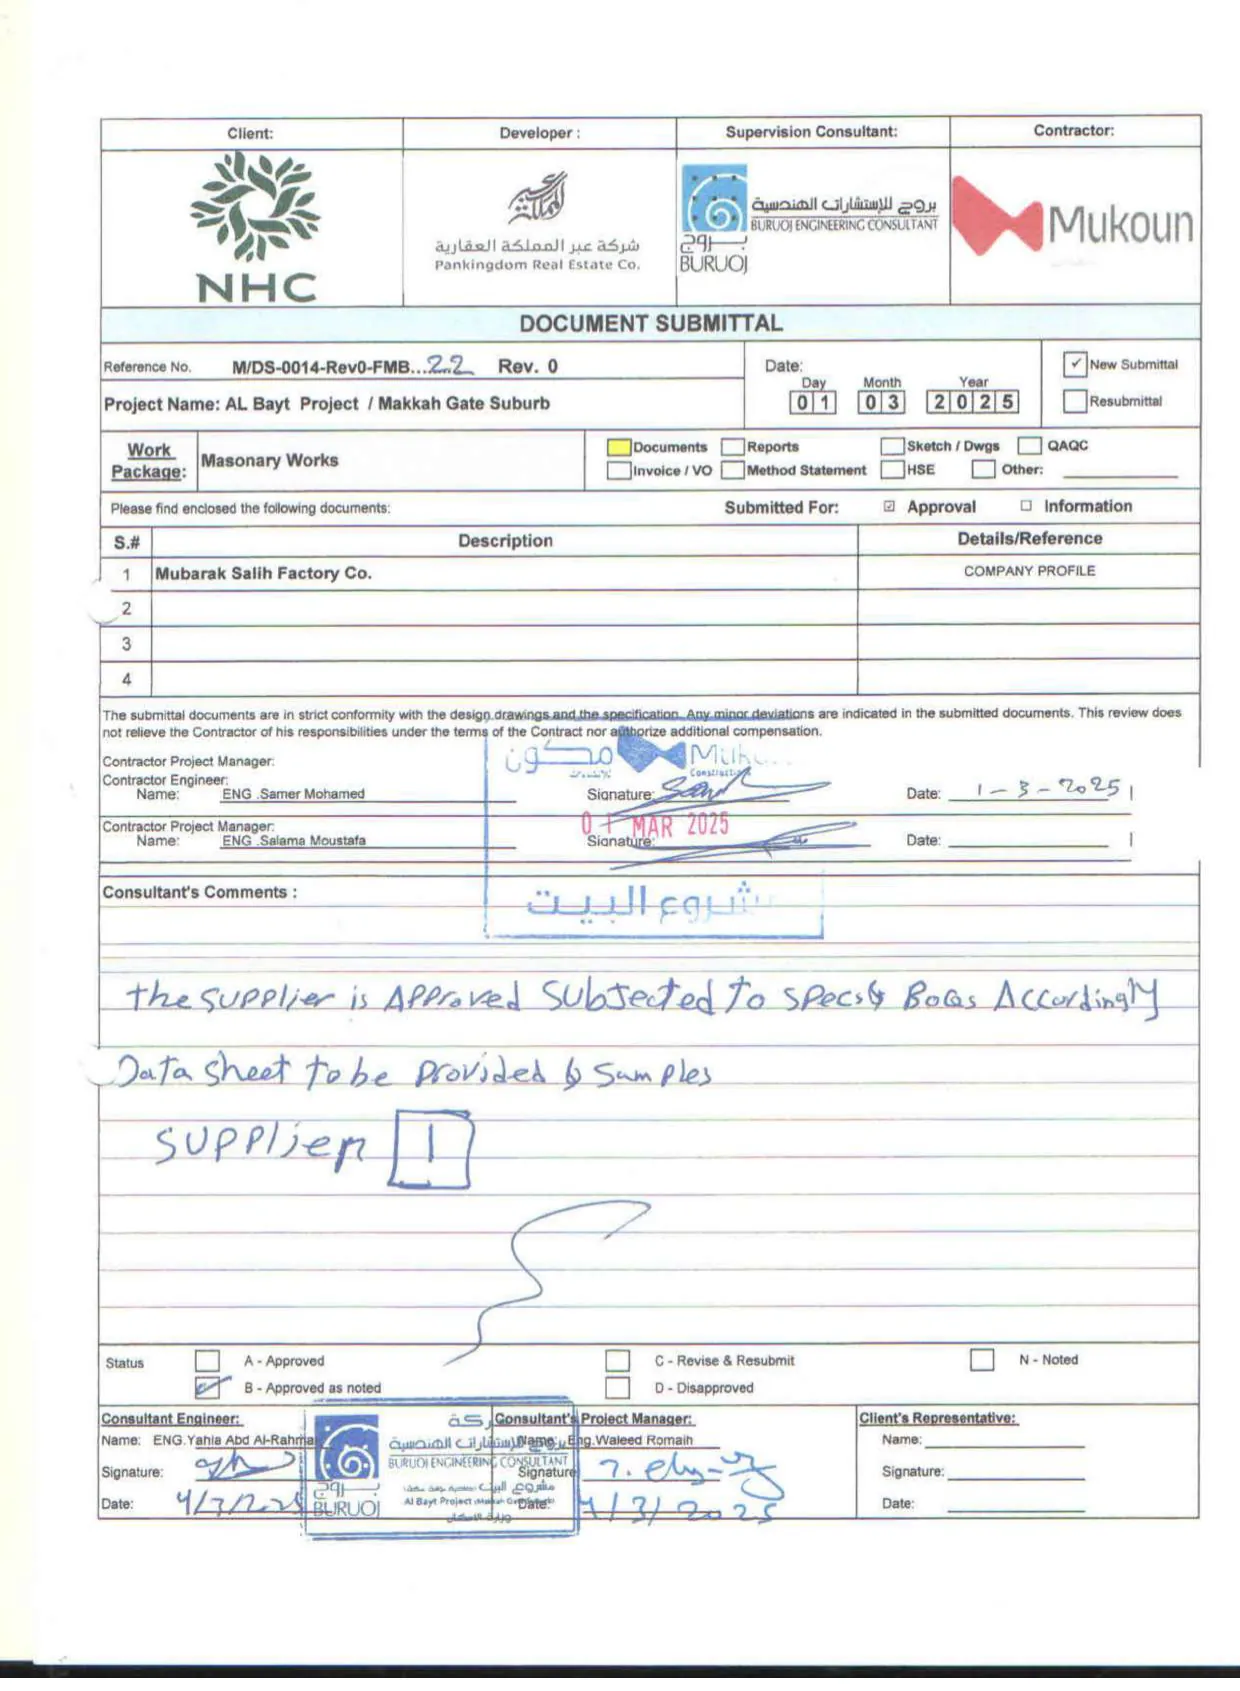 Client: Developer : Supervision Consultant: Contractor:
NHC
شركة عبر المملكة العقارية
Pankingdom Real Estate Co.
بروج للإستشارات الهندسية
BURUOJ ENGINEERING CONSULTANT
بروج
BURUOJ
Mukoun
DOCUMENT SUBMITTAL
Reference No. M/DS-0014-Rev0-FMB...22 Rev. 0
Project Name: AL Bayt Project / Makkah Gate Suburb
Date:
Day Month Year
01 03 2025
✓ New Submittal
Resubmittal
Work Package: Masonary Works
Documents Reports Sketch / Dwgs QAQC
Invoice / VO Method Statement HSE Other:
Please find enclosed the following documents: Submitted For: ☑ Approval ☐ Information
S.# Description Details/Reference
1 Mubarak Salih Factory Co. COMPANY PROFILE
2
3
4
The submittal documents are in strict conformity with the design drawings and the specification. Any minor deviations are indicated in the submitted documents. This review does
not relieve the Contractor of his responsibilities under the terms of the Contract nor authorize additional compensation.
مكون
Construction
Contractor Project Manager:
Contractor Engineer:
Name: ENG .Samer Mohamed Signature: Date: 1-3-2025
01 MAR 2025
Contractor Project Manager:
Name: ENG .Salama Moustafa Signature: Date:
مشروع البيت
Consultant's Comments :
the supplier is Approved Subjected to specs & BOQs Accordingly
Data sheet to be provided & samples
Supplier 1
Status A - Approved C - Revise & Resubmit N - Noted
B - Approved as noted D - Disapproved
Consultant Engineer: Consultant's Project Manager: Client's Representative:
Name: ENG.Yahia Abd Al-Rahma Name: Eng.Waleed Romaih Name:
Signature: Signature Signature:
Date: 4/3/2025 Date: 4/3/2025 Date:
بروج للإستشارات الهندسية
BURUOJ ENGINEERING CONSULTANT
بروج
BURUOJ
مشروع البيت
Al Bayt Project